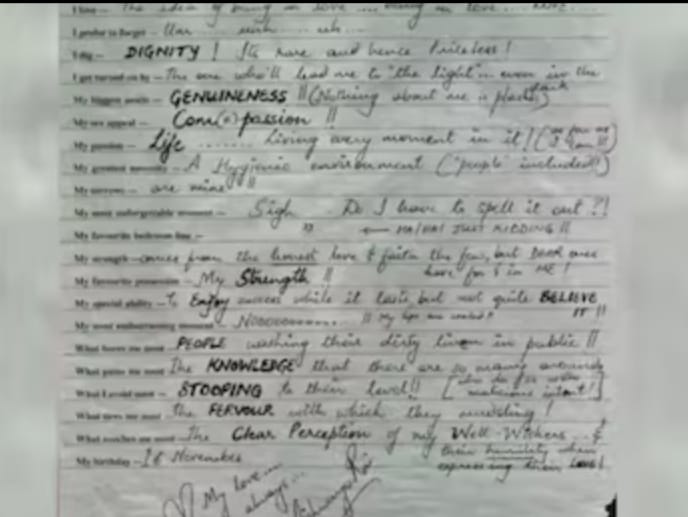 I love – The idea of being in love .... being in love ....
I prefer to forget – Um ... umh ... uh...
I dig – DIGNITY ! Its rare and hence Priceless !
I get turned on by – The one who'll lead me to "the light"... even in the dark
My biggest assets – GENUINENESS !! (Nothing about me is plastic)
My sex appeal – Com(n)passion !!
My passion – Life ....... Living every moment in it ! (
My greatest necessity – A Hygienic environment ("people" included!!)
My sorrows – are mine !!
My most unforgettable moment – Sigh Do I have to spell it out ?!
My favourite bedroom line – " ← HA!HA! JUST KIDDING !!
My strength – comes from the honest love & faith the few, but DEAR ones have for & in ME !
My favourite possession – My Strength !!
My special ability – To Enjoy success while it lasts, but not quite BELIEVE IT !!
My most embarrassing moment – Nooooooo....... !! My lips are sealed !
What bores me most – PEOPLE washing their dirty linen in public !!
What pains me most – The KNOWLEDGE that there are so many around
What I avoid most – STOOPING to their level !! [who do so with malicious intent !]
What awes me most – The FERVOUR with which they !
What touches me most – The Clear Perception of my Well-Wishers .. & their humility when expressing their Love !
My birthday – 1st November
My love...
always...